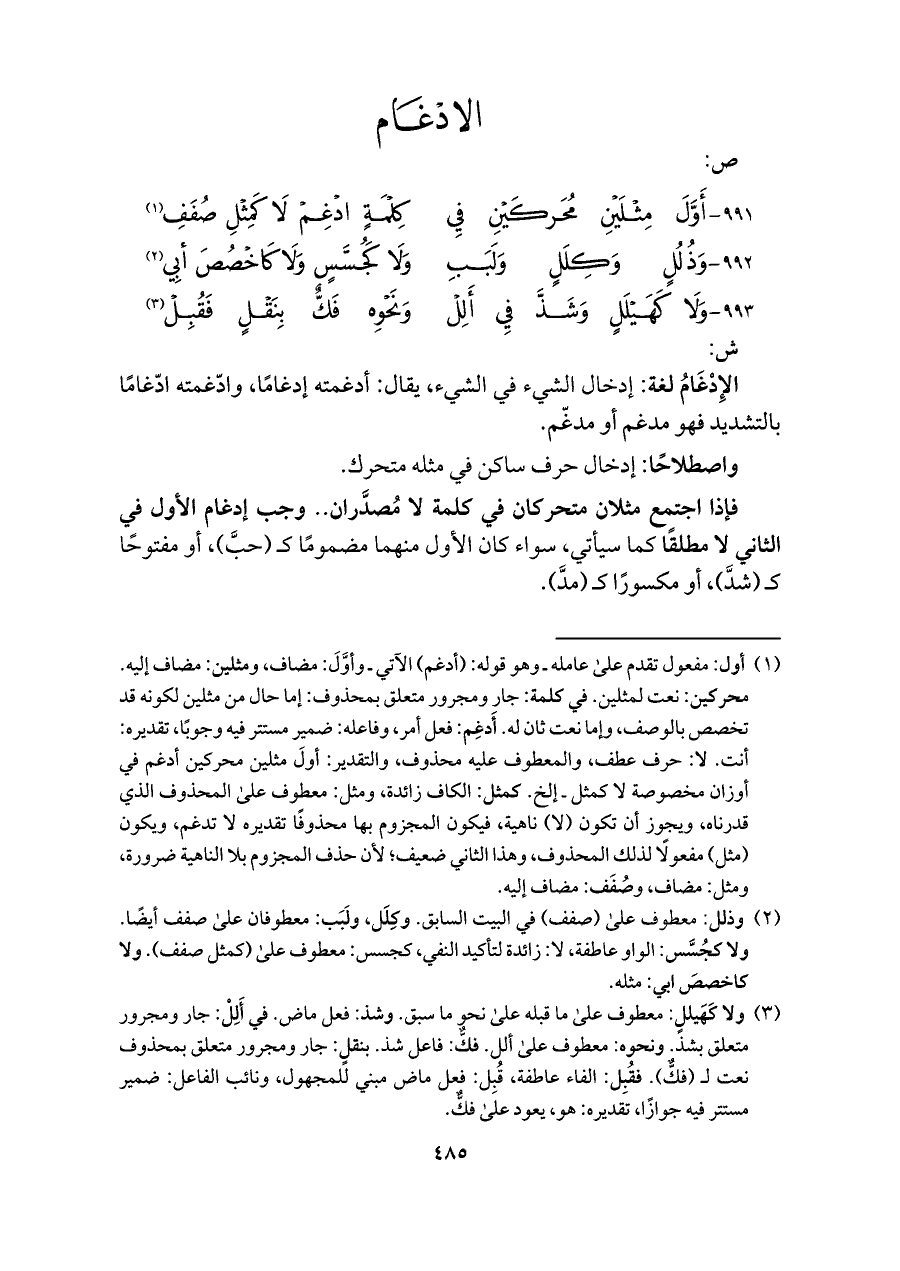 الادْغَام
ص:
٩٩١- أَوَّلَ مِثْلَيْنِ مُحَرَكَيْنِ فِي كِلْمَةٍ ادْغِمْ لَا كَمِثْلِ صُفَفِ(١)
٩٩٢- وَذُلُلٍ وَكِلَلٍ وَلَبَبِ وَلَا كَجُسَّسٍ وَلَا كَاخْصُصَ أبِي(٢)
٩٩٣- وَلَا كَهَيْلَلٍ وَشَذَّ فِي أَلِلْ وَنَحْوِهِ فَكٌّ بِنَقْلٍ فَقُبِلْ(٣)
ش:
الإِدْغَامُ لغة: إدخال الشيء في الشيء، يقال: أدغمته إدغامًا، وادّغمته ادّغامًا
بالتشديد فهو مدغم أو مدغّم.
واصطلاحًا: إدخال حرف ساكن في مثله متحرك.
فإذا اجتمع مثلان متحركان في كلمة لا مُصدَّران.. وجب إدغام الأول في
الثاني لا مطلقًا كما سيأتي، سواء كان الأول منهما مضمومًا كـ (حبَّ)، أو مفتوحًا
كـ (شدَّ)، أو مكسورًا كـ (مدَّ).
(١) أول: مفعول تقدم علىٰ عامله ـ وهو قوله: (أدغم) الآتي ـ وأوَّلَ: مضاف، ومثلين: مضاف إليه.
محركين: نعت لمثلين. في كلمة: جار ومجرور متعلق بمحذوف: إما حال من مثلين لكونه قد
تخصص بالوصف، وإما نعت ثان له. أَدغِم: فعل أمر، وفاعله: ضمير مستتر فيه وجوبًا، تقديره:
أنت. لا: حرف عطف، والمعطوف عليه محذوف، والتقدير: أولَ مثلين محركين أدغم في
أوزان مخصوصة لا كمثل ـ إلخ. كمثل: الكاف زائدة، ومثل: معطوف علىٰ المحذوف الذي
قدرناه، ويجوز أن تكون (لا) ناهية، فيكون المجزوم بها محذوفًا تقديره لا تدغم، ويكون
(مثل) مفعولًا لذلك المحذوف، وهذا الثاني ضعيف؛ لأن حذف المجزوم بلا الناهية ضرورة،
ومثل: مضاف، وصُفَف: مضاف إليه.
(٢) وذلل: معطوف علىٰ (صفف) في البيت السابق. وكِلَل، ولَبَب: معطوفان علىٰ صفف أيضًا.
ولا كجُسَّس: الواو عاطفة، لا: زائدة لتأكيد النفي، كجسس: معطوف علىٰ (كمثل صفف). ولا
كاخصصَ ابي: مثله.
(٣) ولا كَهَيللٍ: معطوف علىٰ ما قبله علىٰ نحو ما سبق. وشذ: فعل ماض. في أَلِلْ: جار ومجرور
متعلق بشذّ. ونحوه: معطوف علىٰ ألل. فكٌّ: فاعل شذ. بنقلٍ: جار ومجرور متعلق بمحذوف
نعت لـ (فكٌّ). فقُبِل: الفاء عاطفة، قُبِل: فعل ماض مبني للمجهول، ونائب الفاعل: ضمير
مستتر فيه جوازًا، تقديره: هو، يعود علىٰ فكٌّ.
٤٨٥